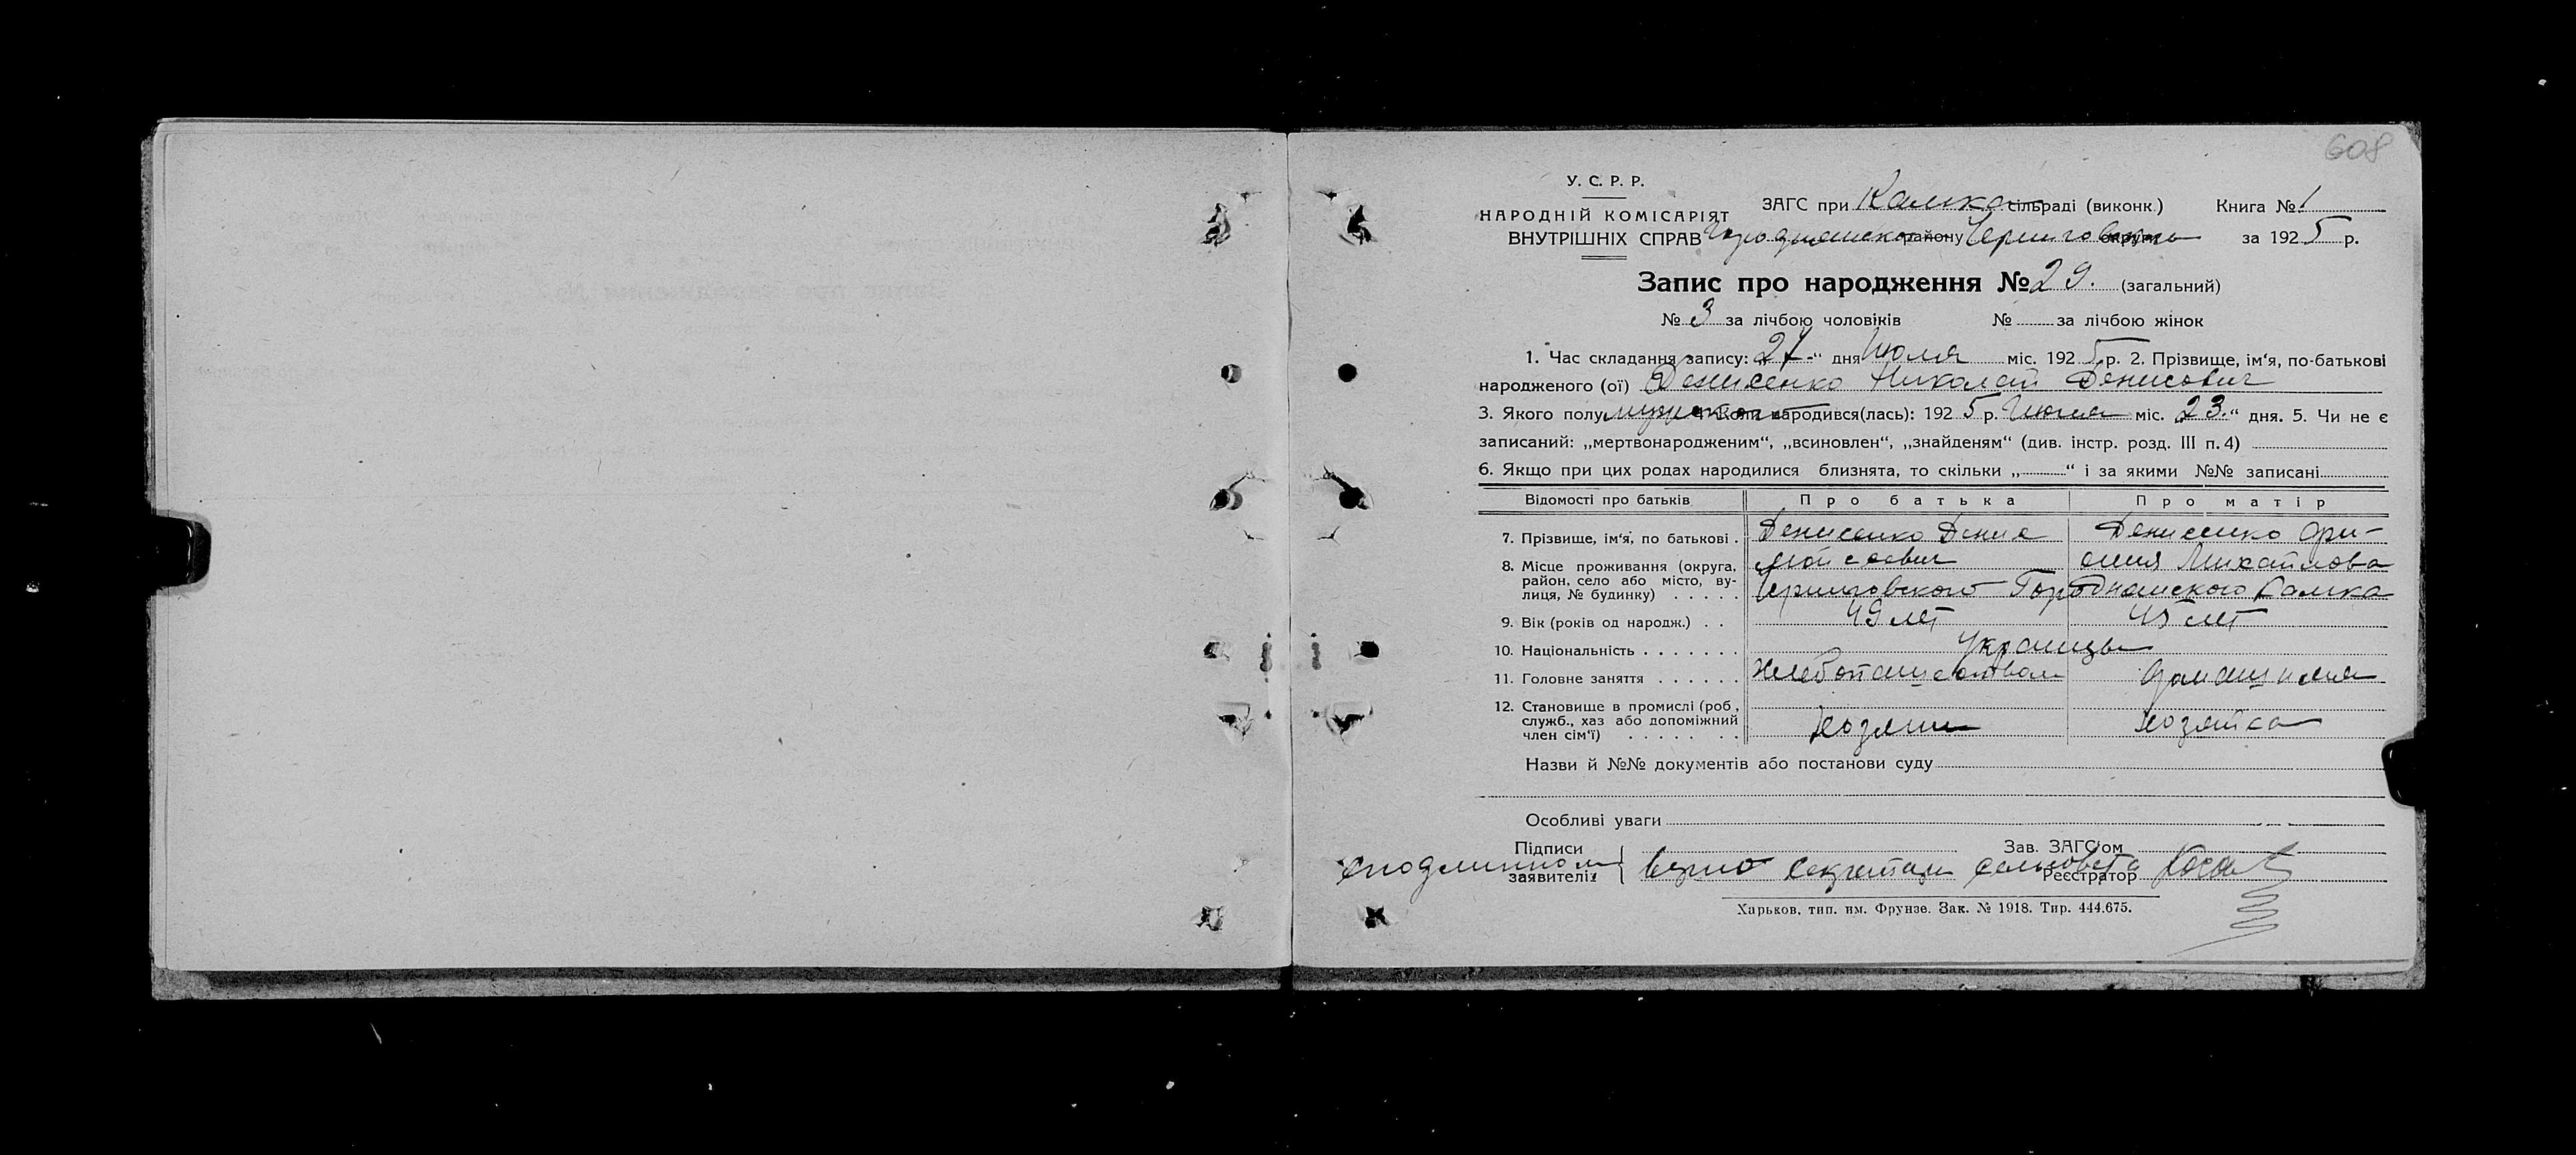 608
У. С. Р. Р.
НАРОДНІЙ КОМІСАРІЯТ
ВНУТРІШНІХ СПРАВ
ЗАГС при Камка сільраді (виконк.) Книга № 1
району округи за 1925 р.
Запис про народження № 29. (загальний)
№ 3 за лічбою чоловіків № за лічбою жінок
1. Час складання запису: 27 “ дня Июля міс. 1925 р. 2. Прізвище, ім‘я, по-батькові
народженого (ої) Денисенко Николай Денисович
3. Якого полу мужского 4. Коли народився(лась): 1925 р. міс. 23.“ дня. 5. Чи не є
записаний: „мертвонародженим“, „всиновлен“, „знайденям“ (див. інстр. розд. III п. 4)
6. Якщо при цих родах народилися близнята, то скільки „ “ і за якими №№ записані
Відомості про батьків Про батька Про матір
7. Прізвище, ім‘я, по батькові . Денисенко Денис Денисенко Ори-
8. Місце проживання (округа, Мойсеевич Михайлова
район, село або місто, ву-
лиця, № будинку) . . . . . Черниговского Городнянского Камка
9. Вік (років од народж.) . . 49 лет 45 лет
10. Національність . . . . . . . Украинцы
11. Головне заняття . . . . . . Хлебопашеством
12. Становище в промислі (роб.,
служб., хаз або допоміжний
член сім‘ї) . . . . . . . Хозяин хозяйка
Назви й №№ документів або постанови суду
Особливі уваги
Підписи
заявителів
Зав. ЗАГС‘ом
Реєстратор
С подлинном верно Секретарь сельсовета
Харьков, тип. им. Фрунзе. Зак. № 1918. Тир. 444.675.